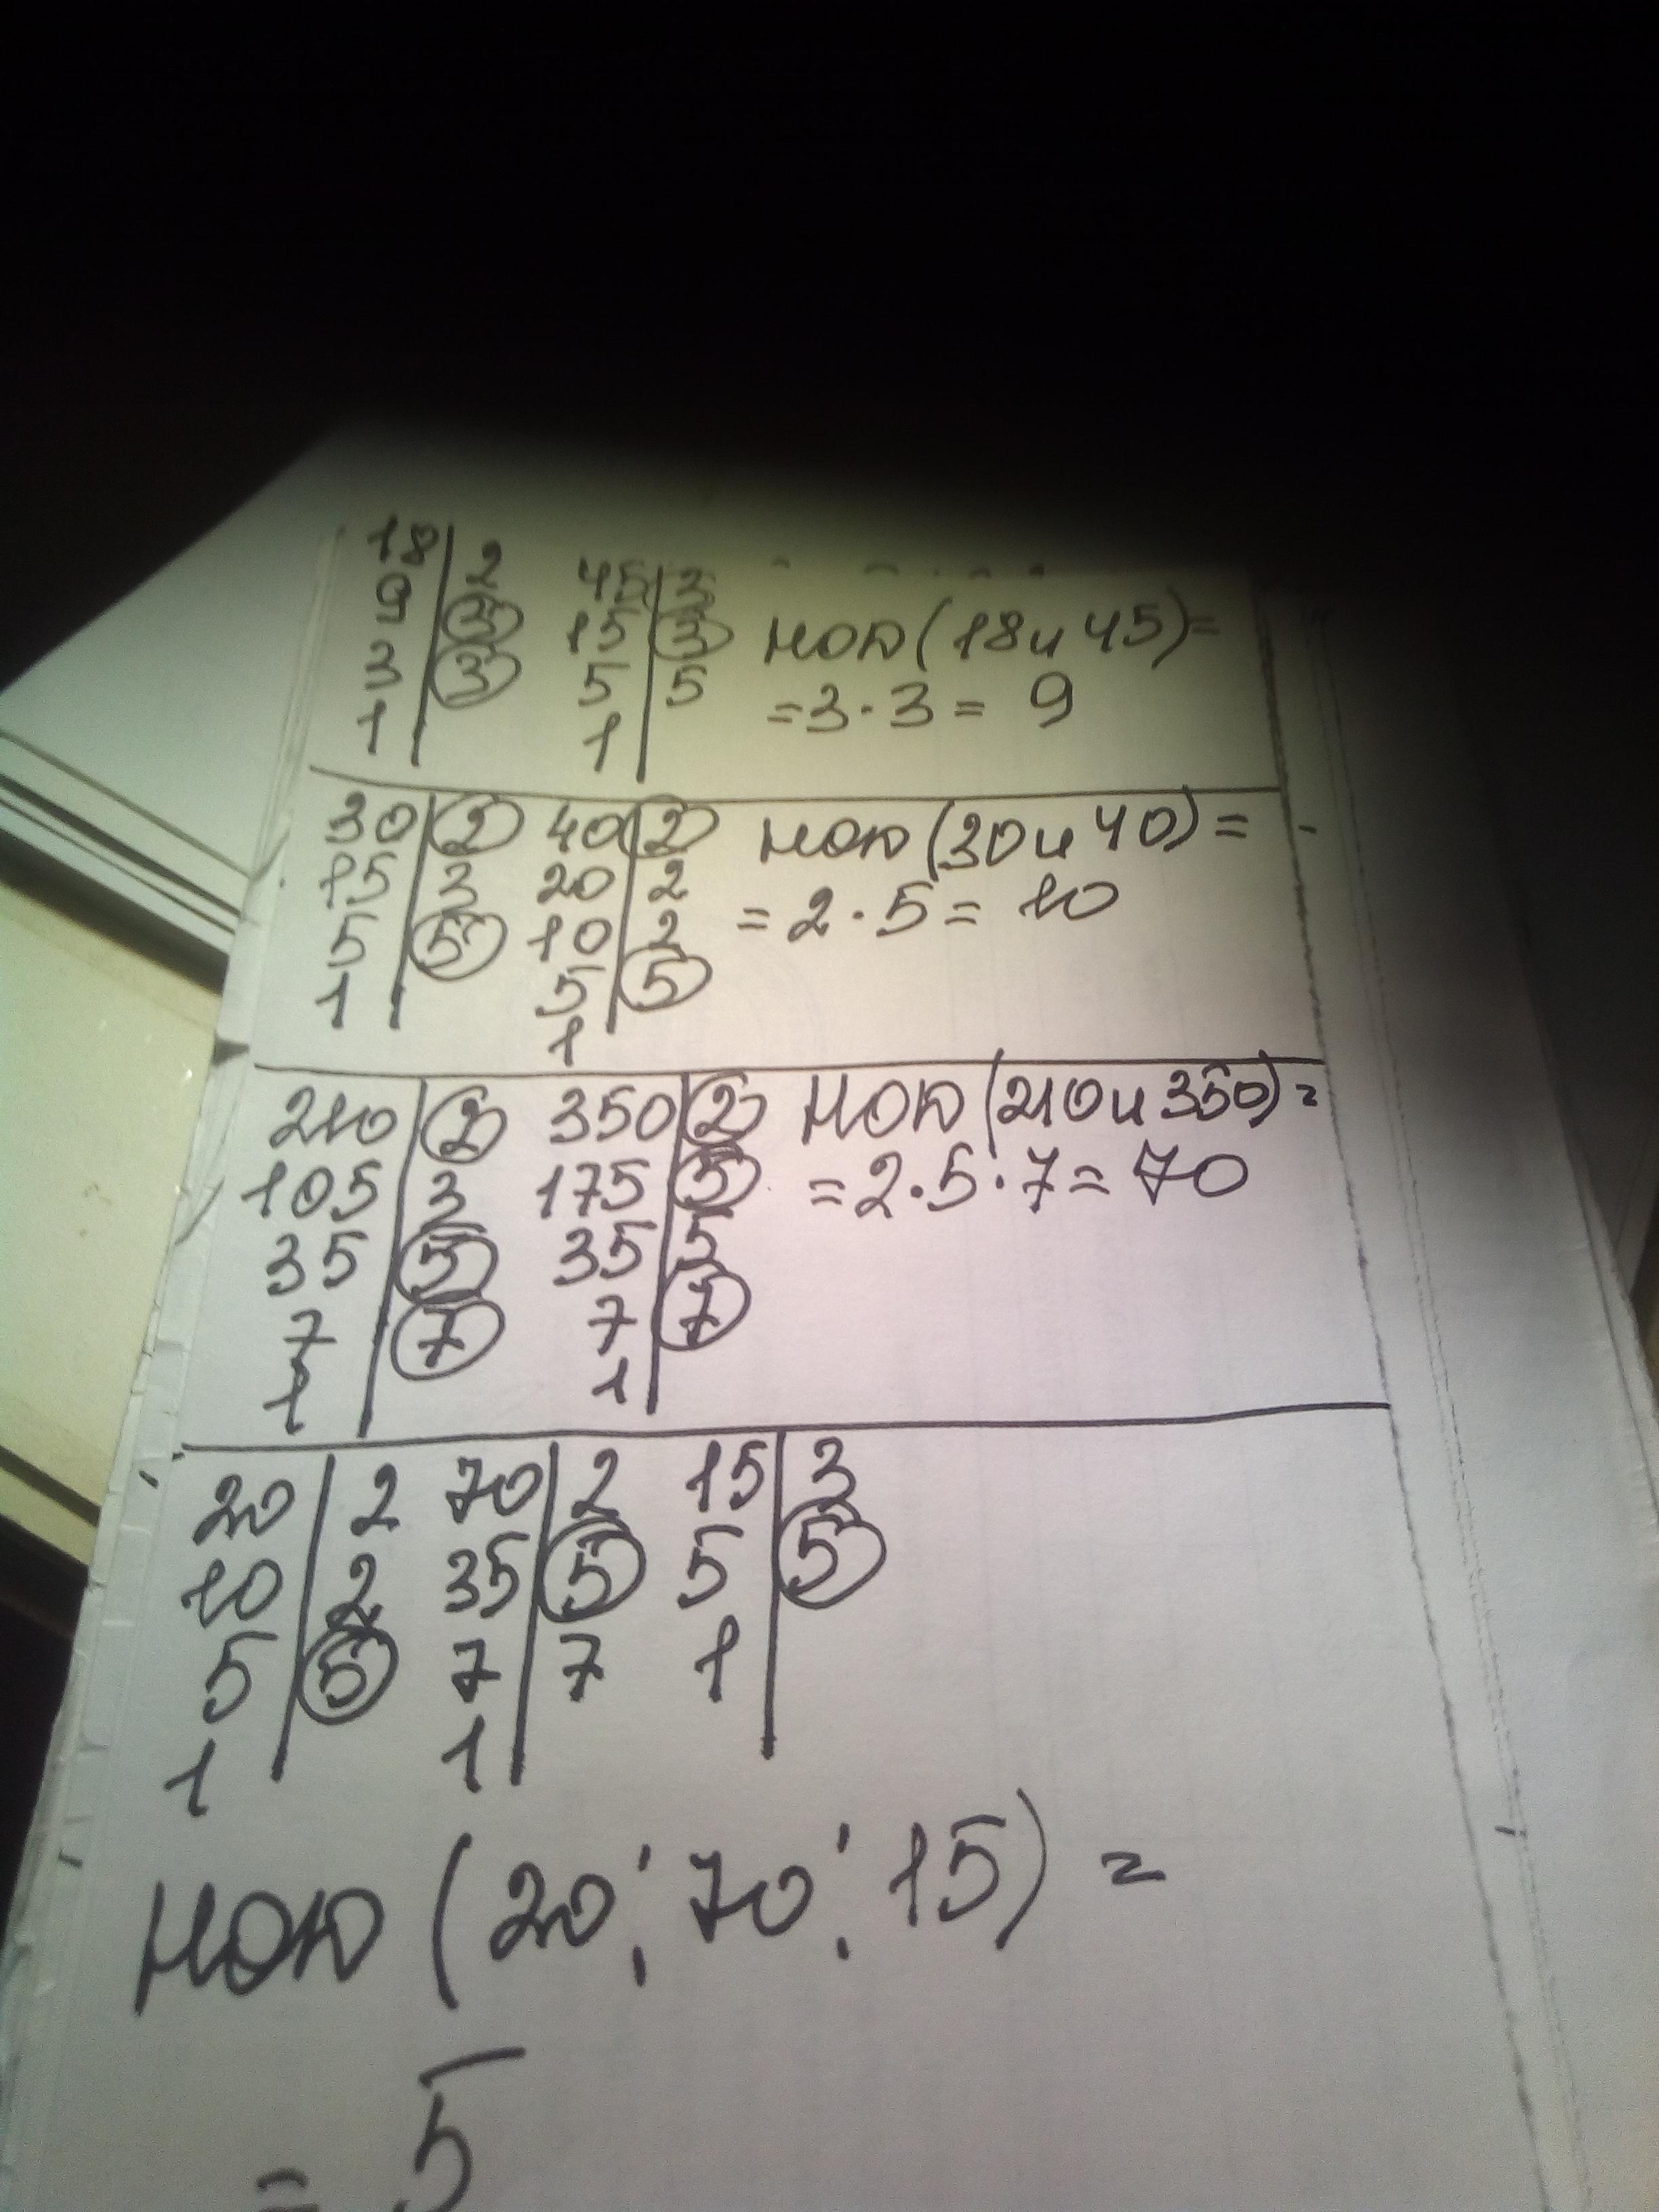 18 | 2 45 | 3
9 | 3 15 | 3 НОД (18 и 45) =
3 | 3 5 | 5 = 3 · 3 = 9
1 | 1 |
30 | 2 40 | 2 НОД (30 и 40) =
15 | 3 20 | 2 = 2 · 5 = 10
5 | 5 10 | 2
1 | 5 | 5
1
210 | 2 350 | 2 НОД (210 и 350) =
105 | 3 175 | 5 = 2 · 5 · 7 = 70
35 | 5 35 | 5
7 | 7 7 | 7
1 | 1 |
20 | 2 70 | 2 15 | 3
10 | 2 35 | 5 5 | 5
5 | 5 7 | 7 1 |
1 | 1 |
НОД (20; 70; 15) =
= 5